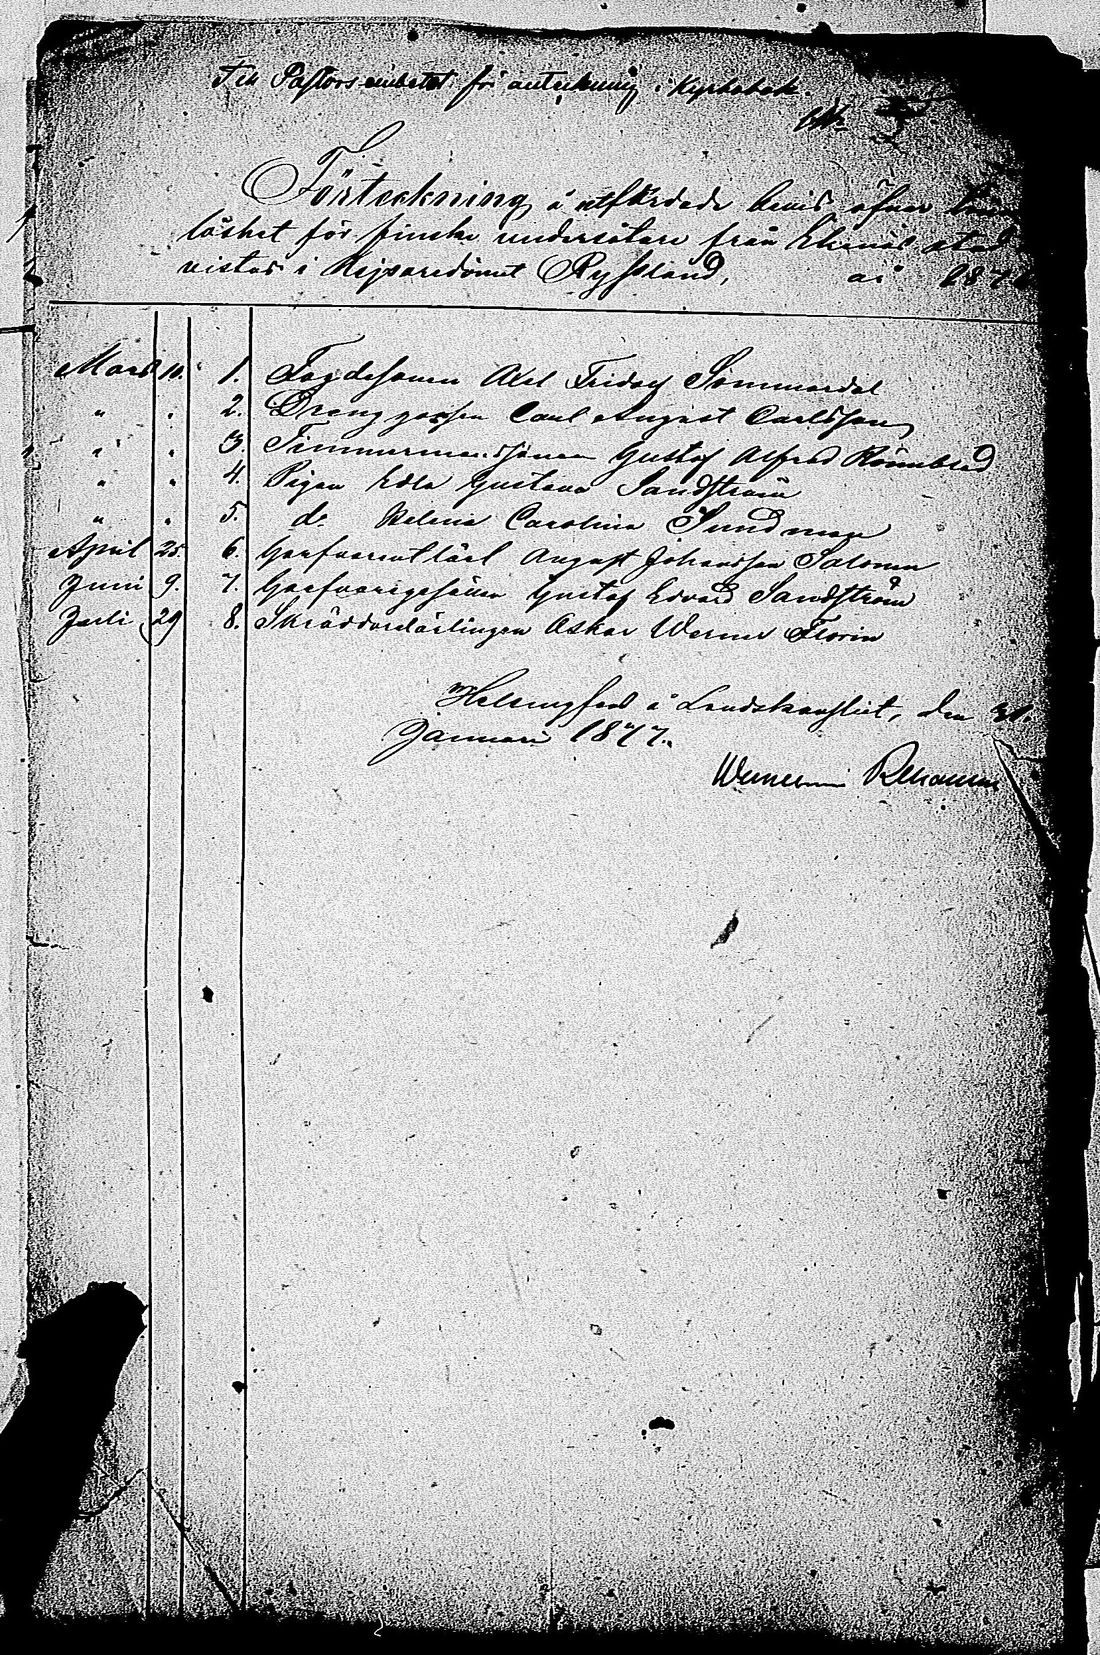 Till Pastors embetet för anteckning i Kyrkobok.
Förteckning å utfärdade bevis öfver
löshet för finske undersåtare från Ekenäs stad
vistas i Kejsaredömet Ryssland, år 187
Mars 10. 1. Fogdesonen Axel Fridolf Sommardal
" . 2. Drenggossen Carl August Carlsson
" . 3. Timmermanssonen Gustaf Alfred Rönnblad
" . 4. Pigan Edla Gustava Sandström
" . 5. d. Helena Carolina Sundman
April 25. 6. August Johansson Salonen
Juni 9. 7. Garfvaregesällen Gustaf Edvard Sandström
Juli 29 8. Skräddarelärlingen Oskar Werner Florin
Helsingfors å Landskansliet, den 31.
Januari 1877.